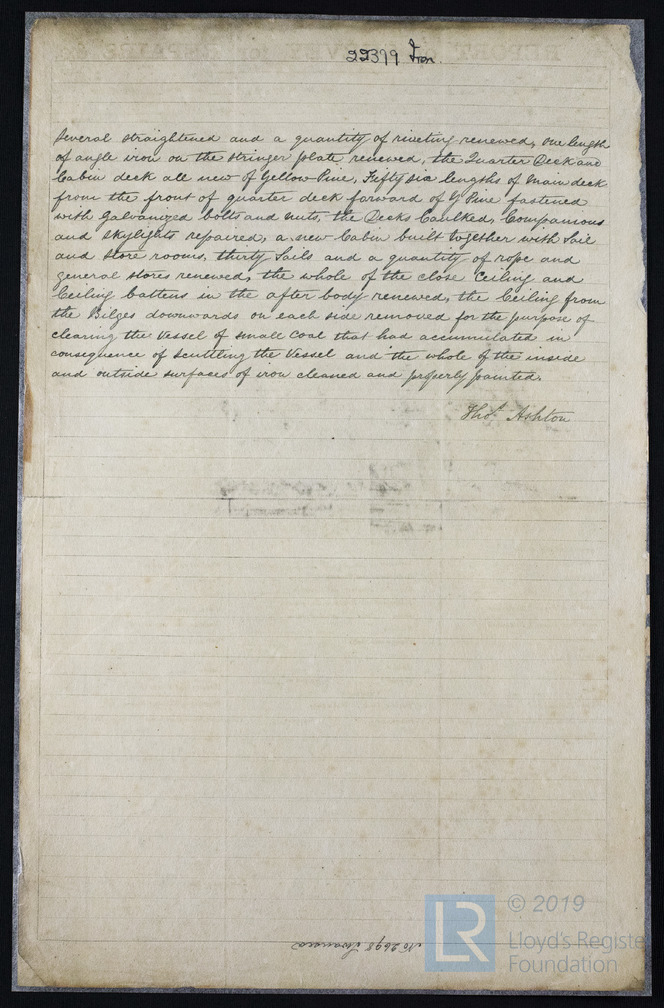 22379 Iron.
several straightened and a quantity of riveting renewed, one length
of angle iron on the stringer plate renewed, the Quarter Deck and
Cabin deck all new of Yellow Pine, Fifty six lengths of Main deck
from the front of quarter deck forward of Y Pine fastened
with galvanized bolts and nuts, the Decks Caulked, Companions
and skylights repaired, a new Cabin built together with Sail
and store rooms, thirty Sails and a quantity of rope and
general stores renewed, the whole of the close Ceiling and
Ceiling battens in the after body renewed, the Ceiling from
the Bilges downwards on each side removed for the purpose of
clearing the Vessel of small Coal that had accumulated in
consequence of Scuttling the Vessel and the whole of the inside
and outside surfaces of iron cleaned and properly painted.
Thos. Ashton
No 2698 Swansea
LR
© 2019
Lloyd's Registe
Foundation